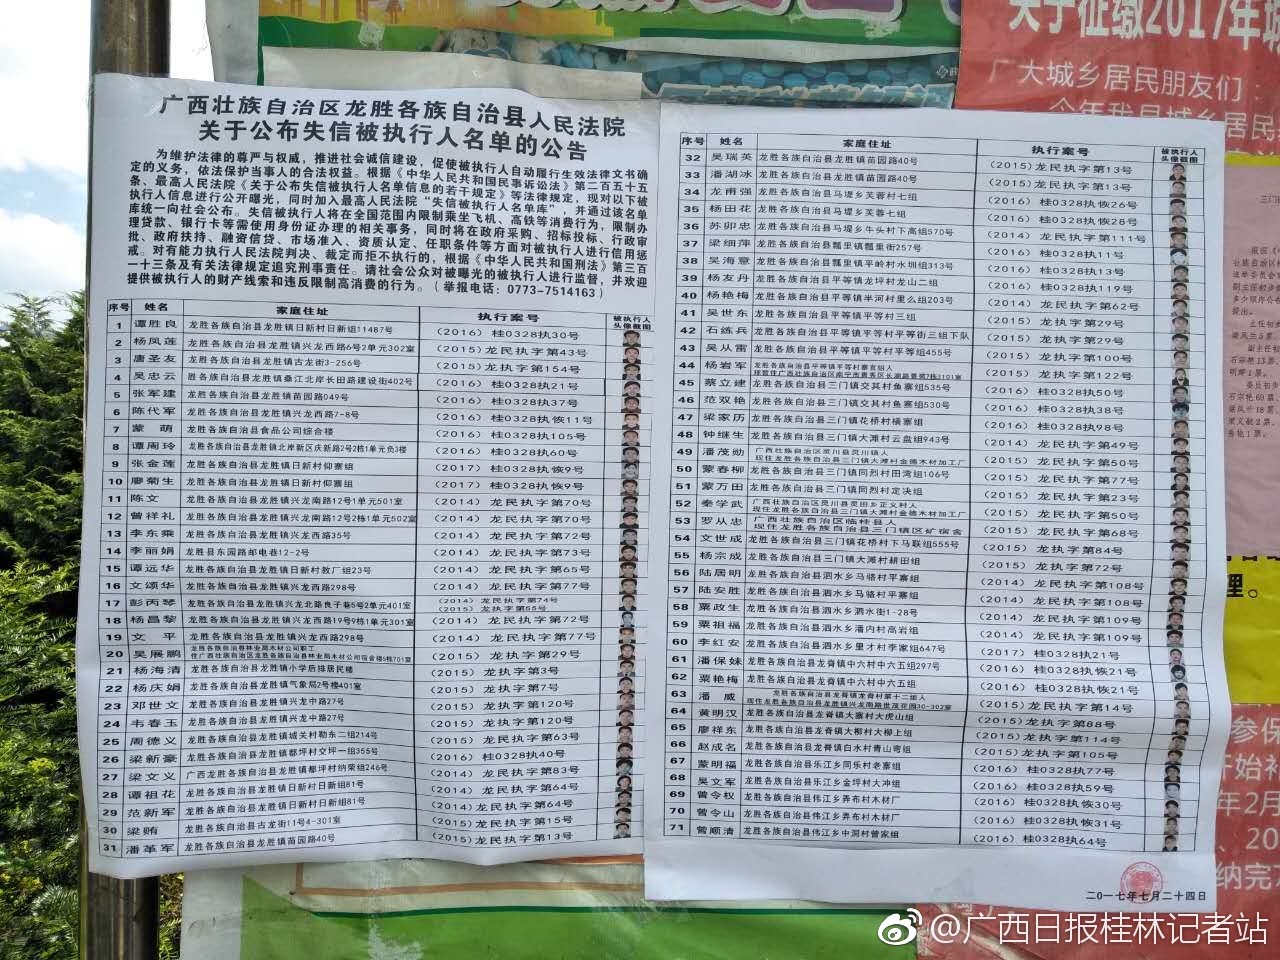 关于征缴2017年城
广大城乡居民朋友们：
广西壮族自治区龙胜各族自治县人民法院
关于公布失信被执行人名单的公告
为维护法律的尊严与权威，推进社会诚信建设，促使被执行人自动履行生效法律文书确
定的义务，依法保护当事人的合法权益。根据《中华人民共和国民事诉讼法》第二百五十五
条、最高人民法院《关于公布失信被执行人名单信息的若干规定》等法律规定，现对以下被
执行人信息进行公开曝光，同时加入最高人民法院“失信被执行人名单库”，并通过该名单
库统一向社会公布。失信被执行人将在全国范围内限制乘坐飞机、高铁等消费行为，限制办
理贷款、银行卡等需使用身份证办理的相关事务，同时将在政府采购、招标投标、行政审
批、政府扶持、融资信贷、市场准入、资质认定、任职条件等方面对被执行人进行信用惩
戒。对有能力执行人民法院判决、裁定而拒不执行的，根据《中华人民共和国刑法》第三百
一十三条及有关法律规定追究刑事责任。请社会公众对被曝光的被执行人进行监督，并欢迎
提供被执行人的财产线索和违反限制高消费的行为。（举报电话：0773-7514163）
序号 姓名 家庭住址 执行案号 被执行人头像截图
1 谭胜良 龙胜各族自治县龙胜镇日新村日新组11487号 （2016）桂0328执30号
2 杨凤莲 龙胜各族自治县龙胜镇兴龙西路6号2单元302室 （2015）龙民执字第43号
3 唐圣友 龙胜各族自治县龙胜镇古龙街3-256号 （2015）龙执字第154号
4 吴忠云 胜各族自治县龙胜镇桑江北岸长田路建设街402号 （2016）桂0328执21号
5 张军建 龙胜各族自治县龙胜镇苗园路049号 （2016）桂0328执37号
6 陈代军 龙胜各族自治县龙胜镇兴龙西路7-8号 （2016）桂0328执恢11号
7 蒙萌 龙胜各族自治县食品公司综合楼 （2016）桂0328执105号
8 谭周玲 龙胜各族自治县龙胜镇北岸新区庆新路2号2栋1单元负3楼 （2016）桂0328执60号
9 张金莲 龙胜各族自治县龙胜镇日新村仰寨组 （2017）桂0328执恢9号
10 廖菊生 龙胜各族自治县龙胜镇日新村仰寨组 （2017）桂0328执恢9号
11 陈文 龙胜各族自治县龙胜镇兴龙南路12号1单元501室 （2014）龙民执字第70号
12 曾祥礼 龙胜各族自治县龙胜镇兴龙南路12号2栋1单元502室 （2014）龙民执字第70号
13 李东乘 龙胜各族自治县龙胜镇兴龙西路35号 （2014）龙民执字第72号
14 李丽娟 龙胜县东园路邮电巷12-2号 （2014）龙民执字第73号
15 谭远华 龙胜各族自治县龙胜镇日新村敖厂组23号 （2014）龙民执字第65号
16 文颂华 龙胜各族自治县龙胜镇兴龙西路298号 （2014）龙民执字第77号
17 彭丙琴 龙胜各族自治县龙胜镇兴龙北路良子巷5号2单元401室 （2014）龙民执字第74号
（2015）龙执字第55号
18 杨昌黎 龙胜各族自治县龙胜镇兴龙西路19号9栋1单元301室 （2014）龙民执字第72号
19 文平 龙胜各族自治县龙胜镇兴龙西路298号 （2014）龙民执字第77号
20 吴展鹏 龙胜各族自治县林业局木材公司职工 （2015）龙执字第29号
住广西壮族自治区龙胜各族自治县林业局木材公司宿舍楼5栋701室
21 杨海清 龙胜各族自治县龙胜镇小学后排居民楼 （2015）龙执字第3号
22 杨庆娟 龙胜各族自治县龙胜镇气象局2号楼401室 （2015）龙执字第7号
23 邓世文 龙胜各族自治县龙胜镇兴龙中路27号 （2015）龙执字第120号
24 韦春玉 龙胜各族自治县龙胜镇兴龙中路27号 （2015）龙执字第120号
25 周德义 龙胜各族自治县龙胜镇城关村勒东二组214号 （2015）龙民执字第63号
26 梁新豪 龙胜各族自治县龙胜镇都坪村交坪一组355号 （2016）桂0328执40号
27 梁文义 广西龙胜各族自治县龙胜镇都坪村纳荣组246号 （2014）龙民执字第83号
28 谭祖花 龙胜各族自治县龙胜镇日新村日新组81号 （2014）龙民执字第64号
29 范新军 龙胜各族自治县龙胜镇日新村日新组81号 （2014）龙民执字第64号
30 梁贿 龙胜各族自治县古龙街11号4-301室 （2015）龙民执字第15号
31 潘革军 龙胜各族自治县龙胜镇苗园路40号 （2015）龙民执字第13号
序号 姓名 家庭住址 执行案号 被执行人头像截图
32 吴瑞英 龙胜各族自治县龙胜镇苗园路40号 （2015）龙民执字第13号
33 潘湖冰 龙胜各族自治县龙胜镇苗园路40号 （2015）龙民执字第13号
34 龙甫强 龙胜各族自治县马堤乡芙蓉村七组 （2016）桂0328执恢26号
35 杨田花 龙胜各族自治县马堤乡芙蓉七组 （2016）桂0328执恢28号
36 苏卯忠 龙胜各族自治县马堤乡牛头村下高组570号 （2014）龙执字第111号
37 梁细萍 龙胜各族自治县瓢里镇瓢里街257号 （2016）桂0328执11号
38 吴海意 龙胜各族自治县瓢里镇平岭村水圳组313号 （2016）桂0328执13号
39 杨友丹 龙胜各族自治县平等镇龙坪村龙山二组 （2016）桂0328执119号
40 杨艳梅 龙胜各族自治县平等镇半河村里么组203号 （2014）龙民执字第62号
41 吴世东 龙胜各族自治县平等镇平等村三组 （2015）龙执字第29号
42 石练兵 龙胜各族自治县平等镇平等村平等街三组下队 （2015）龙执字第29号
43 吴从雷 龙胜各族自治县平等镇平等村平等组455号 （2015）龙执字第100号
44 杨岩军 龙胜各族自治县平等镇平等村寨官组人 （2015）龙执字第122号
45 蔡立建 龙胜各族自治县三门镇交其村鱼寨组535号 （2016）桂0328执50号
46 范双艳 龙胜各族自治县三门镇交其村鱼寨组530号 （2016）桂0328执38号
47 梁家历 龙胜各族自治县三门镇花桥村横寨组 （2016）桂0328执98号
48 钟继生 龙胜各族自治县三门镇大滩村云盘组943号 （2014）龙民执字第49号
49 潘茂勋 广西壮族自治区灵川县灵川镇人 （2015）龙执字第50号
现住龙胜各族自治县三门镇大滩村金德木材加工厂
50 蒙春柳 龙胜各族自治县三门镇同烈村田湾组106号 （2015）龙执字第77号
51 蒙万田 龙胜各族自治县三门镇同烈村定决组 （2015）龙执字第23号
52 秦学武 广西壮族自治区灵川县灵田乡正义村人 （2015）龙执字第50号
现住龙胜各族自治县三门镇大滩村金德木材加工厂
53 罗从忠 广西壮族自治区临桂县人 （2015）龙执字第68号
现住龙胜各族自治县三门镇区矿宿舍
54 文世成 龙胜各族自治县三门镇花桥村下马联组555号 （2015）龙执字第84号
55 杨宗成 龙胜各族自治县三门镇大滩村耕田组 （2015）龙执字第72号
56 陆居明 龙胜各族自治县泗水乡马骆村平寨组 （2014）龙民执字第108号
57 陆安胜 龙胜各族自治县泗水乡马骆村平寨组 （2014）龙民执字第108号
58 粟政生 龙胜各族自治县泗水乡泗水街1-28号 （2014）龙民执字第109号
59 粟祖福 龙胜各族自治县泗水乡潘内村高岩组 （2014）龙民执字第109号
60 李红安 龙胜各族自治县泗水乡里才村李家组647号 （2017）桂0328执21号
61 潘保妹 龙胜各族自治县龙脊镇中六村中六五组297号 （2016）桂0328执恢21号
62 粟艳梅 龙胜各族自治县龙脊镇中六村中六五组 （2016）桂0328执恢21号
63 潘威 龙胜各族自治县龙脊镇龙脊村第十二组人 （2015）龙执字第14号
现住龙胜各族自治县龙胜镇兴龙南路世茂花园30-302室
64 黄明汉 龙胜各族自治县龙脊镇大寨村大虎山组 （2015）龙执字第88号
65 廖祥东 龙胜各族自治县龙脊镇大柳村大柳上组 （2015）龙执字第114号
66 赵成名 龙胜各族自治县龙脊镇白水村青山湾组 （2015）龙执字第105号
67 蒙明福 龙胜各族自治县乐江乡同乐村老寨组 （2016）桂0328执77号
68 吴文军 龙胜各族自治县乐江乡金坪村大冲组 （2016）桂0328执59号
69 曾令权 龙胜各族自治县伟江乡弄布村木材厂 （2016）桂0328执恢30号
70 曾令山 龙胜各族自治县伟江乡弄布村木材厂 （2016）桂0328执恢31号
71 曾顺清 龙胜各族自治县伟江乡中洞村曾家组 （2016）桂0328执64号
二〇一七年七月二十四日
理。
参保
开始补
年2月
纳完
@广西日报桂林记者站